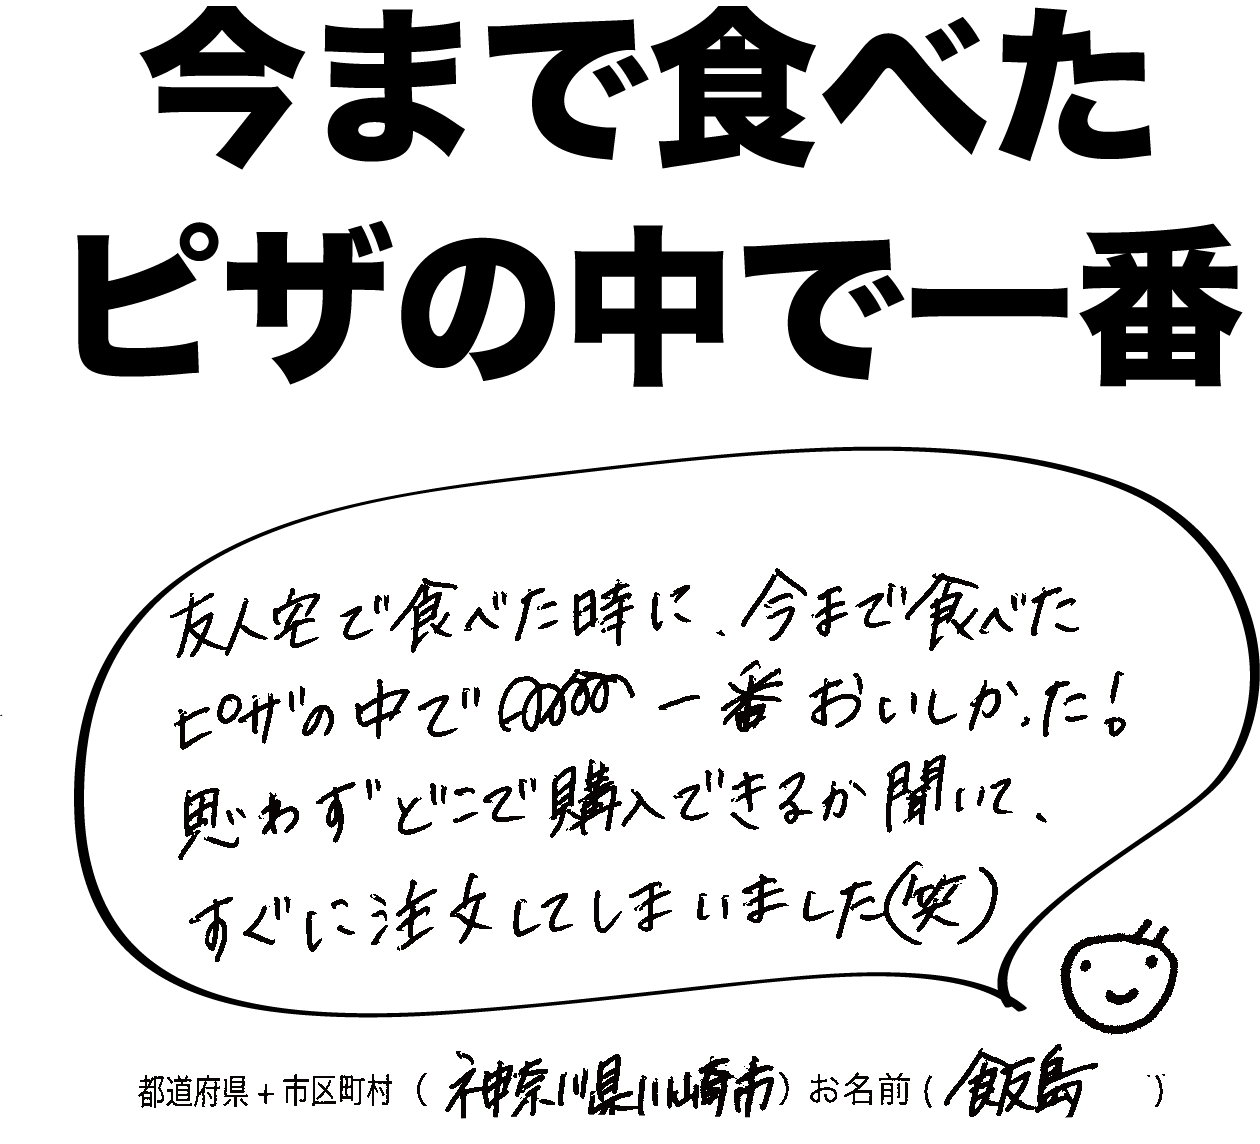 今まで食べた
ピザの中で一番
友人宅で食べた時に、今まで食べた
ピザの中で 一番おいしかった!
思わずどこで購入できるか聞いて、
すぐに注文してしまいました(笑)
都道府県+市区町村(神奈川県川崎市)お名前(飯島 )